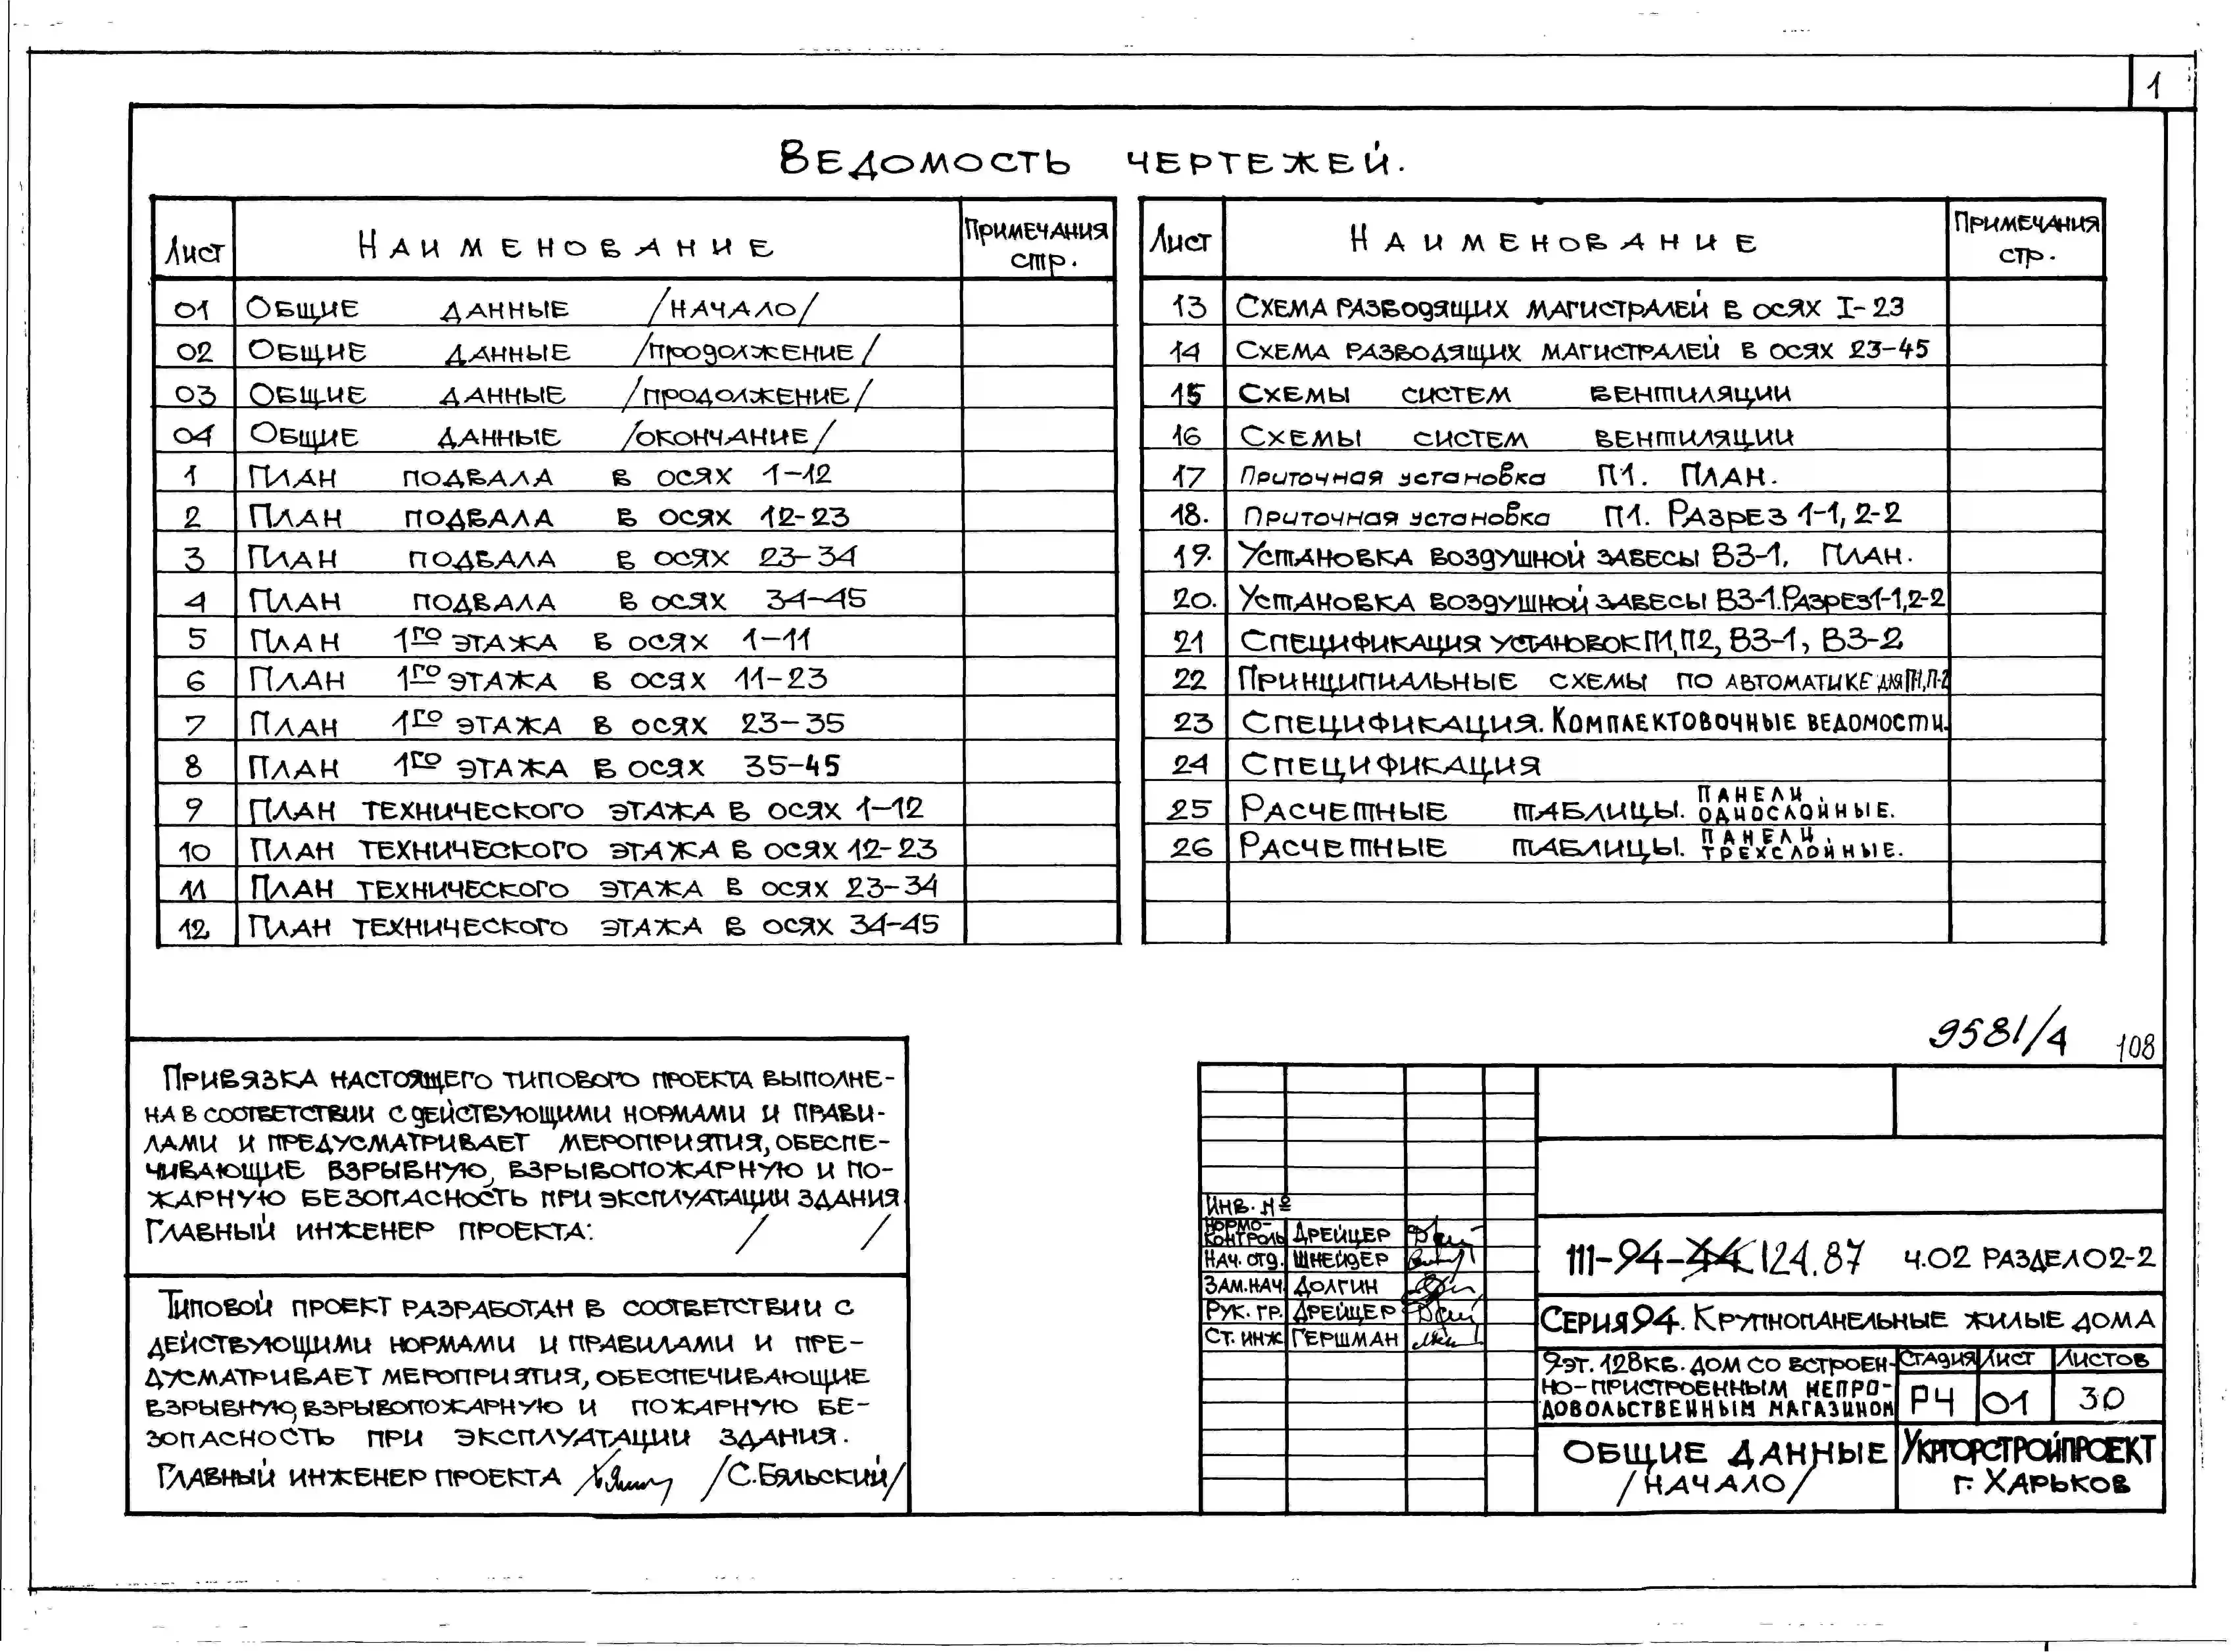 1
Ведомость чертежей.
Лист Наименование Примечания стр.
01 Общие данные /начало/
02 Общие данные /продолжение/
03 Общие данные /продолжение/
04 Общие данные /окончание/
1 План подвала в осях 1-12
2 План подвала в осях 12-23
3 План подвала в осях 23-34
4 План подвала в осях 34-45
5 План 1го этажа в осях 1-11
6 План 1го этажа в осях 11-23
7 План 1го этажа в осях 23-35
8 План 1го этажа в осях 35-45
9 План технического этажа в осях 1-12
10 План технического этажа в осях 12-23
11 План технического этажа в осях 23-34
12 План технического этажа в осях 34-45
Лист Наименование Примечания стр.
13 Схема разводящих магистралей в осях I-23
14 Схема разводящих магистралей в осях 23-45
15 Схемы систем вентиляции
16 Схемы систем вентиляции
17 Приточная установка П1. План.
18. Приточная установка П1. Разрез 1-1, 2-2
19. Установка воздушной завесы ВЗ-1. План.
20. Установка воздушной завесы ВЗ-1. Разрез 1-1, 2-2
21 Спецификация установок П1, П2, ВЗ-1, ВЗ-2
22 Принципиальные схемы по автоматике для П-1, П-2
23 Спецификация. Комплектовочные ведомости.
24 Спецификация
25 Расчетные таблицы. Панели однослойные.
26 Расчетные таблицы. Панели трехслойные.
9581/4 108
Привязка настоящего типового проекта выполне-
на в соответствии с действующими нормами и прави-
лами и предусматривает мероприятия, обеспе-
чивающие взрывную, взрывопожарную и по-
жарную безопасность при эксплуатации здания
Главный инженер проекта: / /
Типовой проект разработан в соответствии с
действующими нормами и правилами и пре-
дусматривает мероприятия, обеспечивающие
взрывную, взрывопожарную и пожарную бе-
зопасность при эксплуатации здания.
Главный инженер проекта /С. Бяльский/
Инв. №
Нормо-контроль Дрейцер
Нач. отд. Шнейдер
Зам. нач Долгин
Рук. гр. Дрейцер
Ст. инж Гершман
111-94-44 124.87 ч.02 раздел 02-2
Серия 94. Крупнопанельные жилые дома
9эт. 128кв. дом со встроен-
но-пристроенным непро-
довольственным магазином
Стадия Лист Листов
РЧ 01 30
Общие данные
/начало/
Укргорстройпроект
г. Харьков